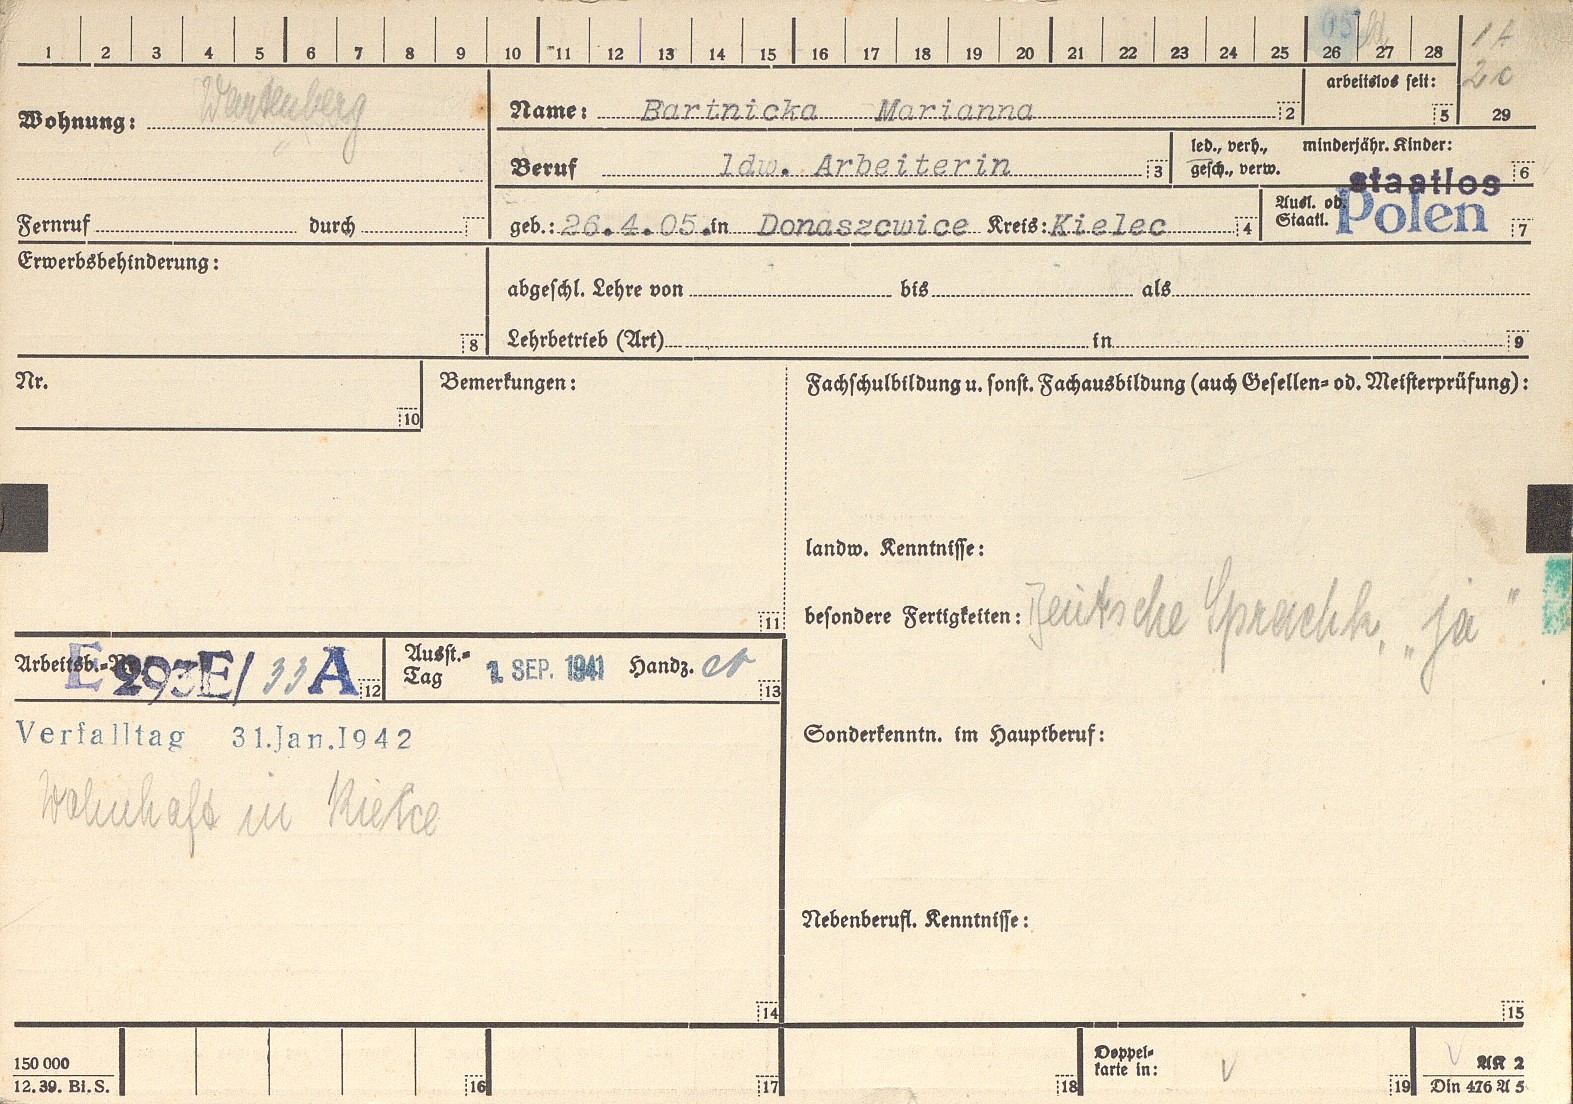 1 2 3 4 5 6 7 8 9 10 11 12 13 14 15 16 17 18 19 20 21 22 23 24 25 26 27 28
Wohnung: Wartenberg
Name: Bartnicka Marianna 2
arbeitslos seit: 5
29
Beruf ldw. Arbeiterin 3
led., verh., gesch., verw.
minderjähr. Kinder: 6
Fernruf durch
geb.: 26.4.05. in Donaszcwice Kreis: Kielec 4
Ausl. od. Staatl. staatlos Polen 7
Erwerbsbehinderung: 8
abgeschl. Lehre von bis als
Lehrbetrieb (Art) in 9
Nr. 10
Bemerkungen: 11
Fachschulbildung u. sonst. Fachausbildung (auch Gesellen- od. Meisterprüfung):
landw. Kenntnisse:
besondere Fertigkeiten: Deutsche Sprachk. „ja"
Arbeitsb.-Nr. E 293E/33A 12
Ausst.-Tag 1. SEP. 1941 Handz. 13
Verfalltag 31.Jan.1942
Wohnhaft in Kielce
14
Sonderkenntn. im Hauptberuf:
Nebenberufl. Kenntnisse:
15
150 000
12.39. Bl.S.
16 17 18
Doppel-
karte in: 19
AK 2
Din 476 A 5